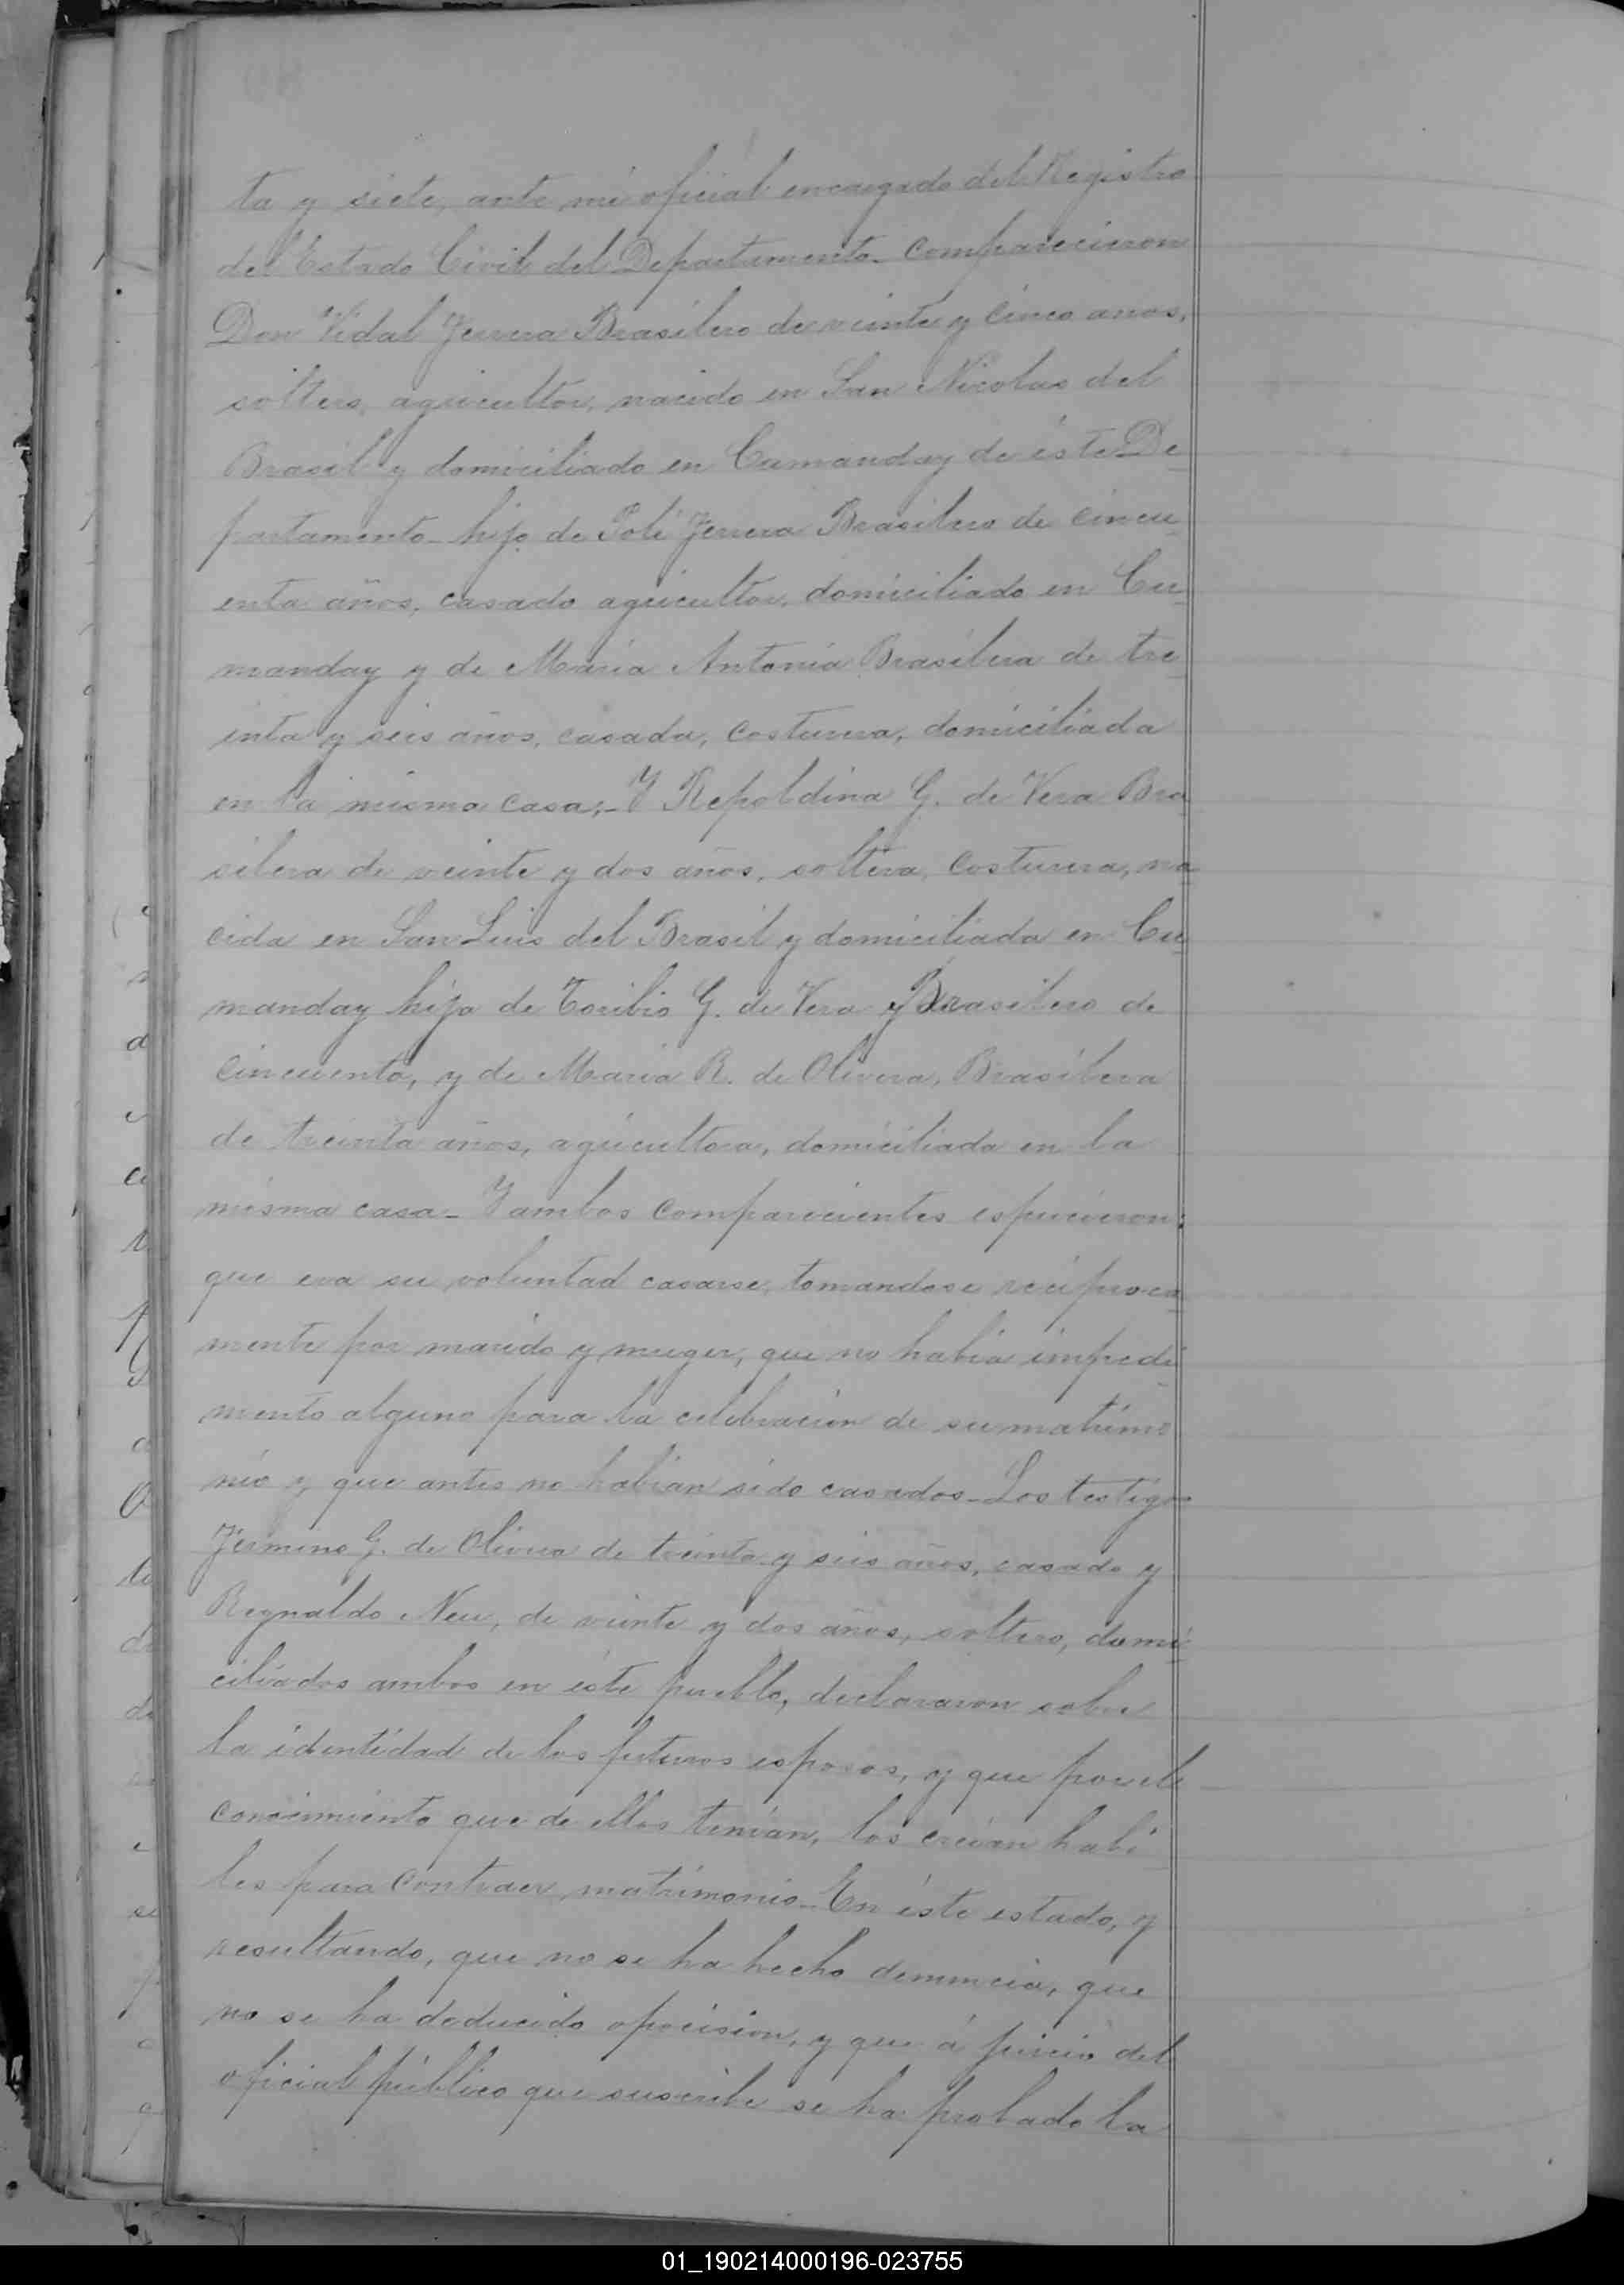 ta y siete, ante mi oficial encargado del Registro
del Estado Civil del Departamento_ Comparecieron
Don Vidal Ferrera Brasilero de veinte y cinco años,
soltero, agricultor, nacido en San Nicolas del
Brasil y domiciliado en Cumanday de éste De-
partamento_ hijo de Poli Ferrera Brasilero de cincu-
enta años, casado agricultor, domiciliado en Cu-
manday y de Maria Antonia Brasilera de tre-
inta y seis años, casada, costurera, domiciliada
en la misma casa;_ Y Repoldina G. de Vera Bra-
silera de veinte y dos años, soltera, costurera, na-
cida en San Luis del Brasil y domiciliada en Cu-
manday hija de Toribio G. de Vera y Brasilero de
cincuenta, y de Maria R. de Olivera, Brasilera
de treinta años, agricultora, domiciliada en la
misma casa_ Y ambos comparecientes espucieron:
que era su voluntad casarse, tomandose reciproca-
mente por marido y muger, que no habia impedi-
mento alguno para la celebracion de su matrimo
nio y que antes no habian sido casados_ Los testigos
Fermino G. de Olivera de treinta y seis años, casado y
Reynaldo Neu, de veinte y dos años, soltero, domi-
ciliados ambos en éste pueblo, declararon sobre
la identidad de los futuros esposos, y que por el
conocimiento que de ellos tenian, los creian habi-
les para contraer matrimonio_ En éste estado, y
resultando, que no se ha hecho denuncia, que
no se ha deducido oposision, y que á juicio del
oficial público que suscribe se ha probado la
01_190214000196-023755